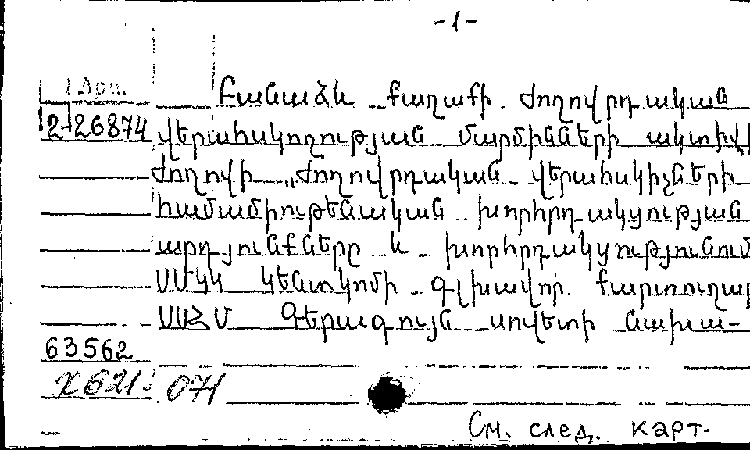 -1-
Բանաձև քաղաքի ժողովրդական
2-26874 վերահսկողության մարմինների ակտիվի
ժողովի „Ժողովրդական վերահսկիչների
համամիութենական խորհրդակցության
արդյունքները և խորհրդակցությունում
ՍՄԿԿ Կենտկոմի գլխավոր քարտուղար
ՍՍՀՄ Գերագույն սովետի նախա-
63562
X621.071
См. след. карт.